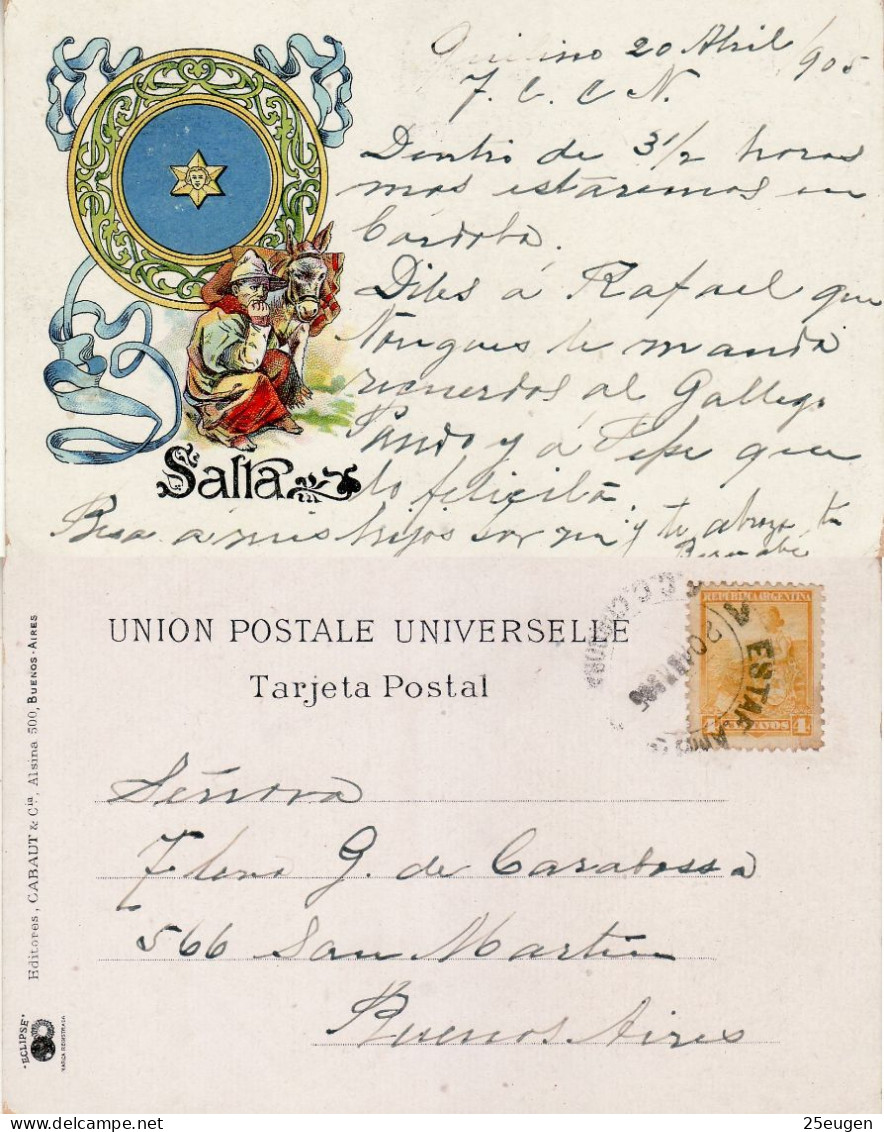 Quilino 20 Abril /905
F. C. C N.
Dentro de 3 1/2 horas
mas estaremos en
Córdoba.
Diles á Rafael que
le manda
recuerdos al Gallego
Pardo y á Pepe que
lo felicita
Besa á mis hijos por mi y te abraza tu
Bernabé
Salta
UNION POSTALE UNIVERSELLE
Tarjeta Postal
REPUBLICA ARGENTINA
4 CENTAVOS 4
ESTAF. AMB
Señora
G. de Carabassa
566 San Martin
Buenos Aires
Editores, CABAUT & Cia, Alsina 500, BUENOS-AIRES
"ECLIPSE"
MARCA REGISTRADA
DELCAMPE.NET
25eugen